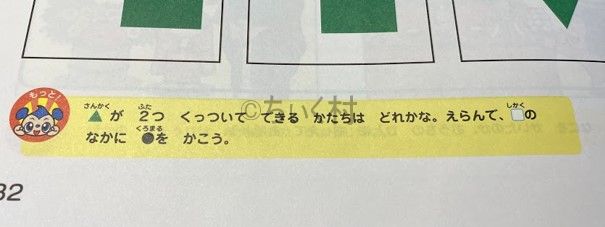 もっと!
さんかく ふた しかく
▲が 2つ くっついて できる かたちは どれかな。えらんで、□の
くろまる
なかに ●を かこう。
©ちいく村
32